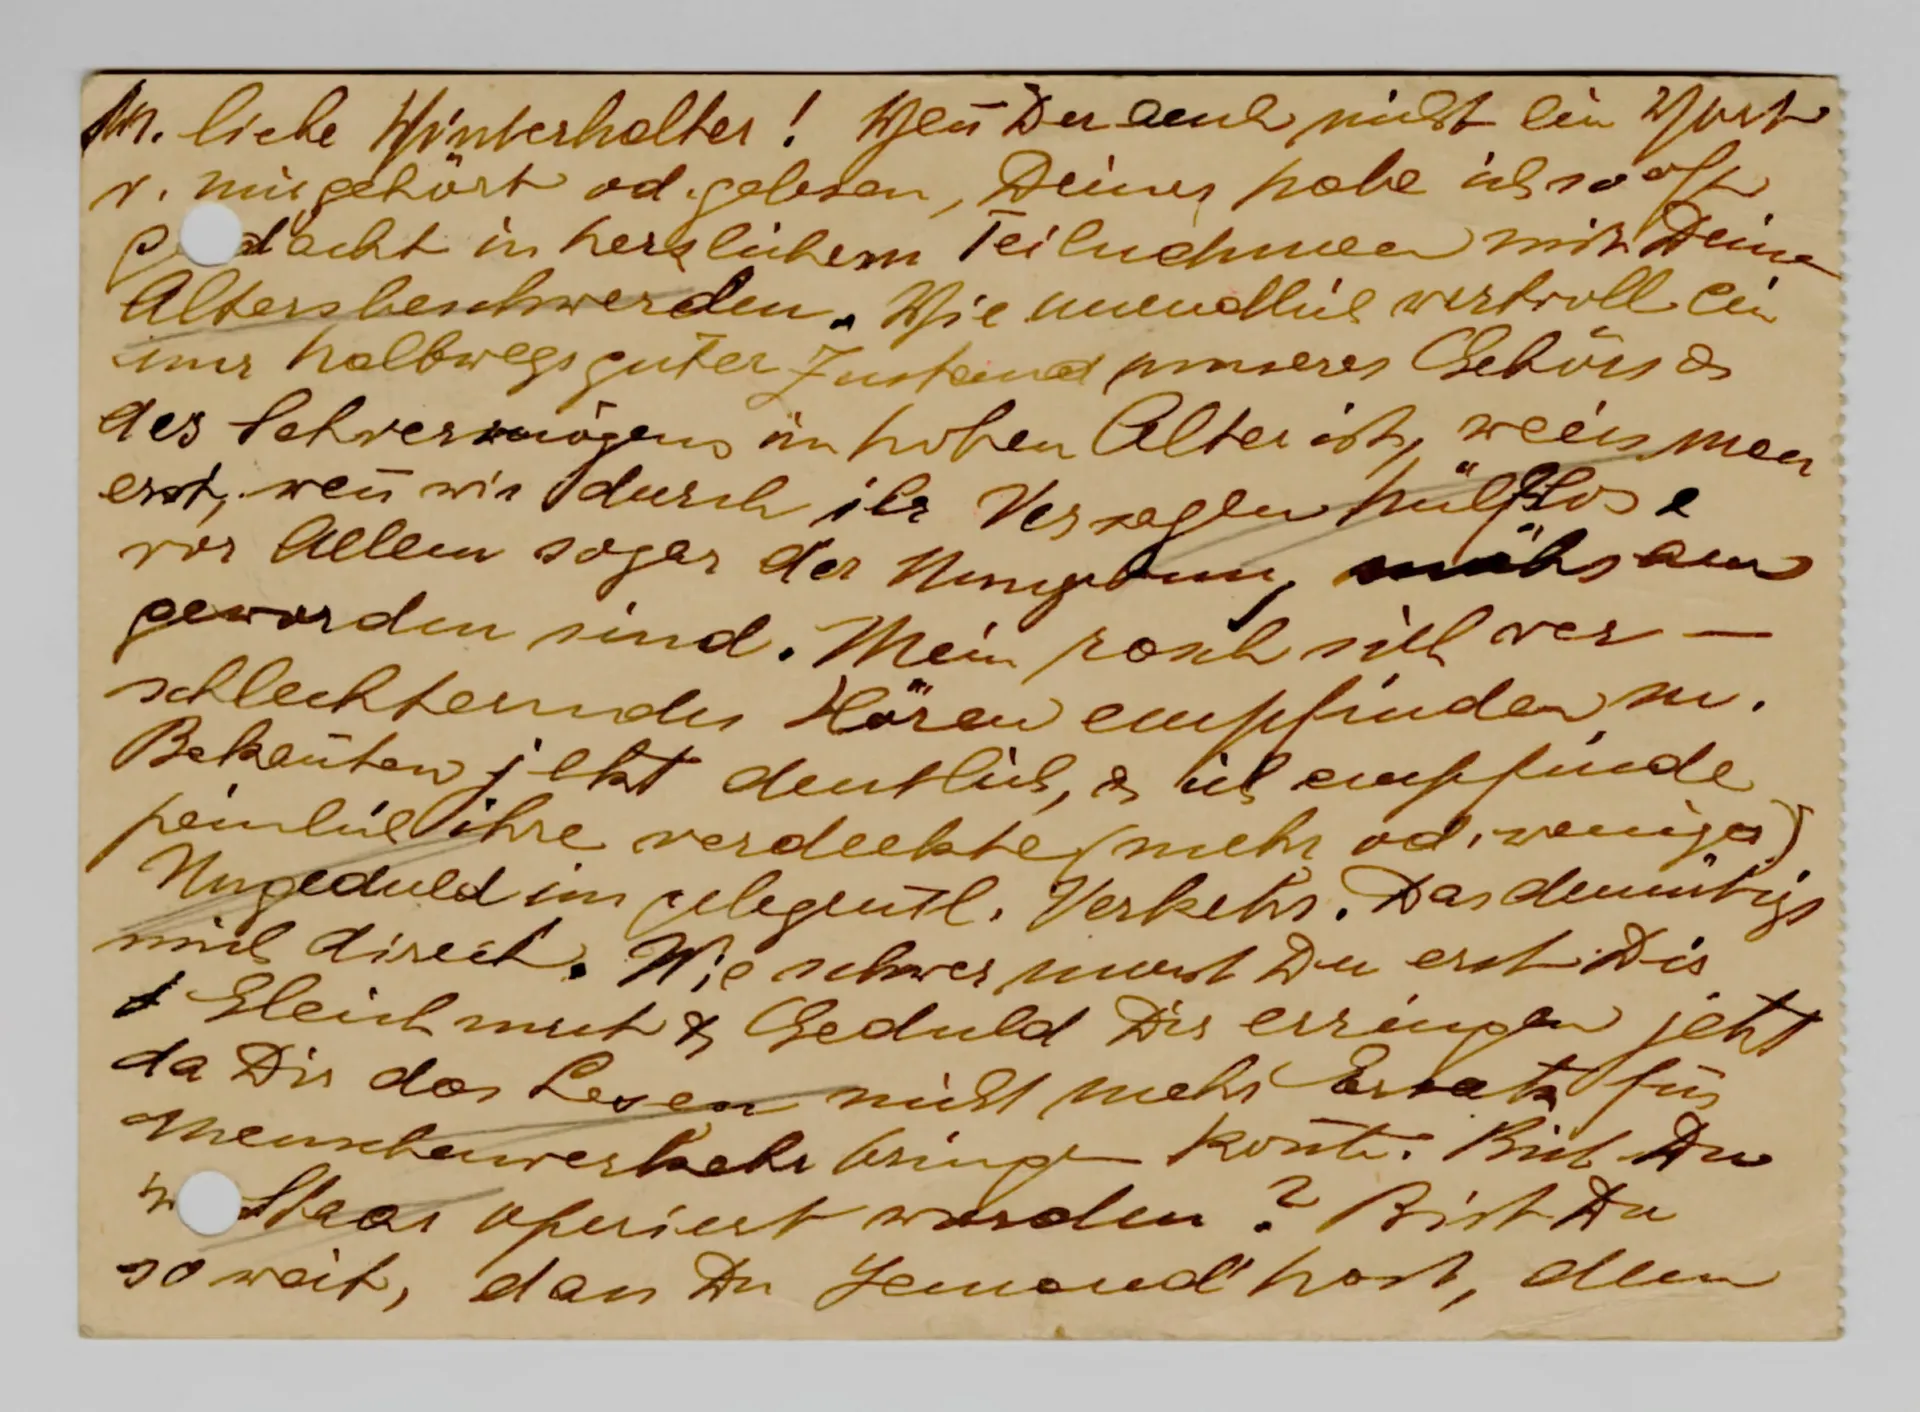 M. liebe Winterhalter! Weñ Du auch nicht ein Wort
v. mir gehört od. gelesen, Deiner habe ich so oft
gedacht in herzlichem Teilnehmen mit Deinen
Altersbeschwerden. Wie unendlich wertvoll ein
nur halbwegs guter Zustand unseres Gehörs &
des Sehvermögens im hohen Alter ist, weiss man
erst, weñ wir durch ihr Versagen hülflos e
vor Allem sogar der Umgebung, mühsam
geworden sind. Mein rasch sich ver-
schlechterndes Hören empfinden m.
Bekañten jetzt deutlich, & ich empfinde
peinlich ihre verdeckte (mehr od. weniger)
Ungeduld im gelegentl. Verkehr. Das demütigt
mich direct. Wie schwer musst Du erst Dir
Gleichmut & Geduld Dir erringen jetzt
da Dir das Lesen nicht mehr Ersatz für
Menschenverkehr bringen koñte. Bist Du
Staar operiert worden? Bist Du
so weit, dass Du Jemand hast, dem